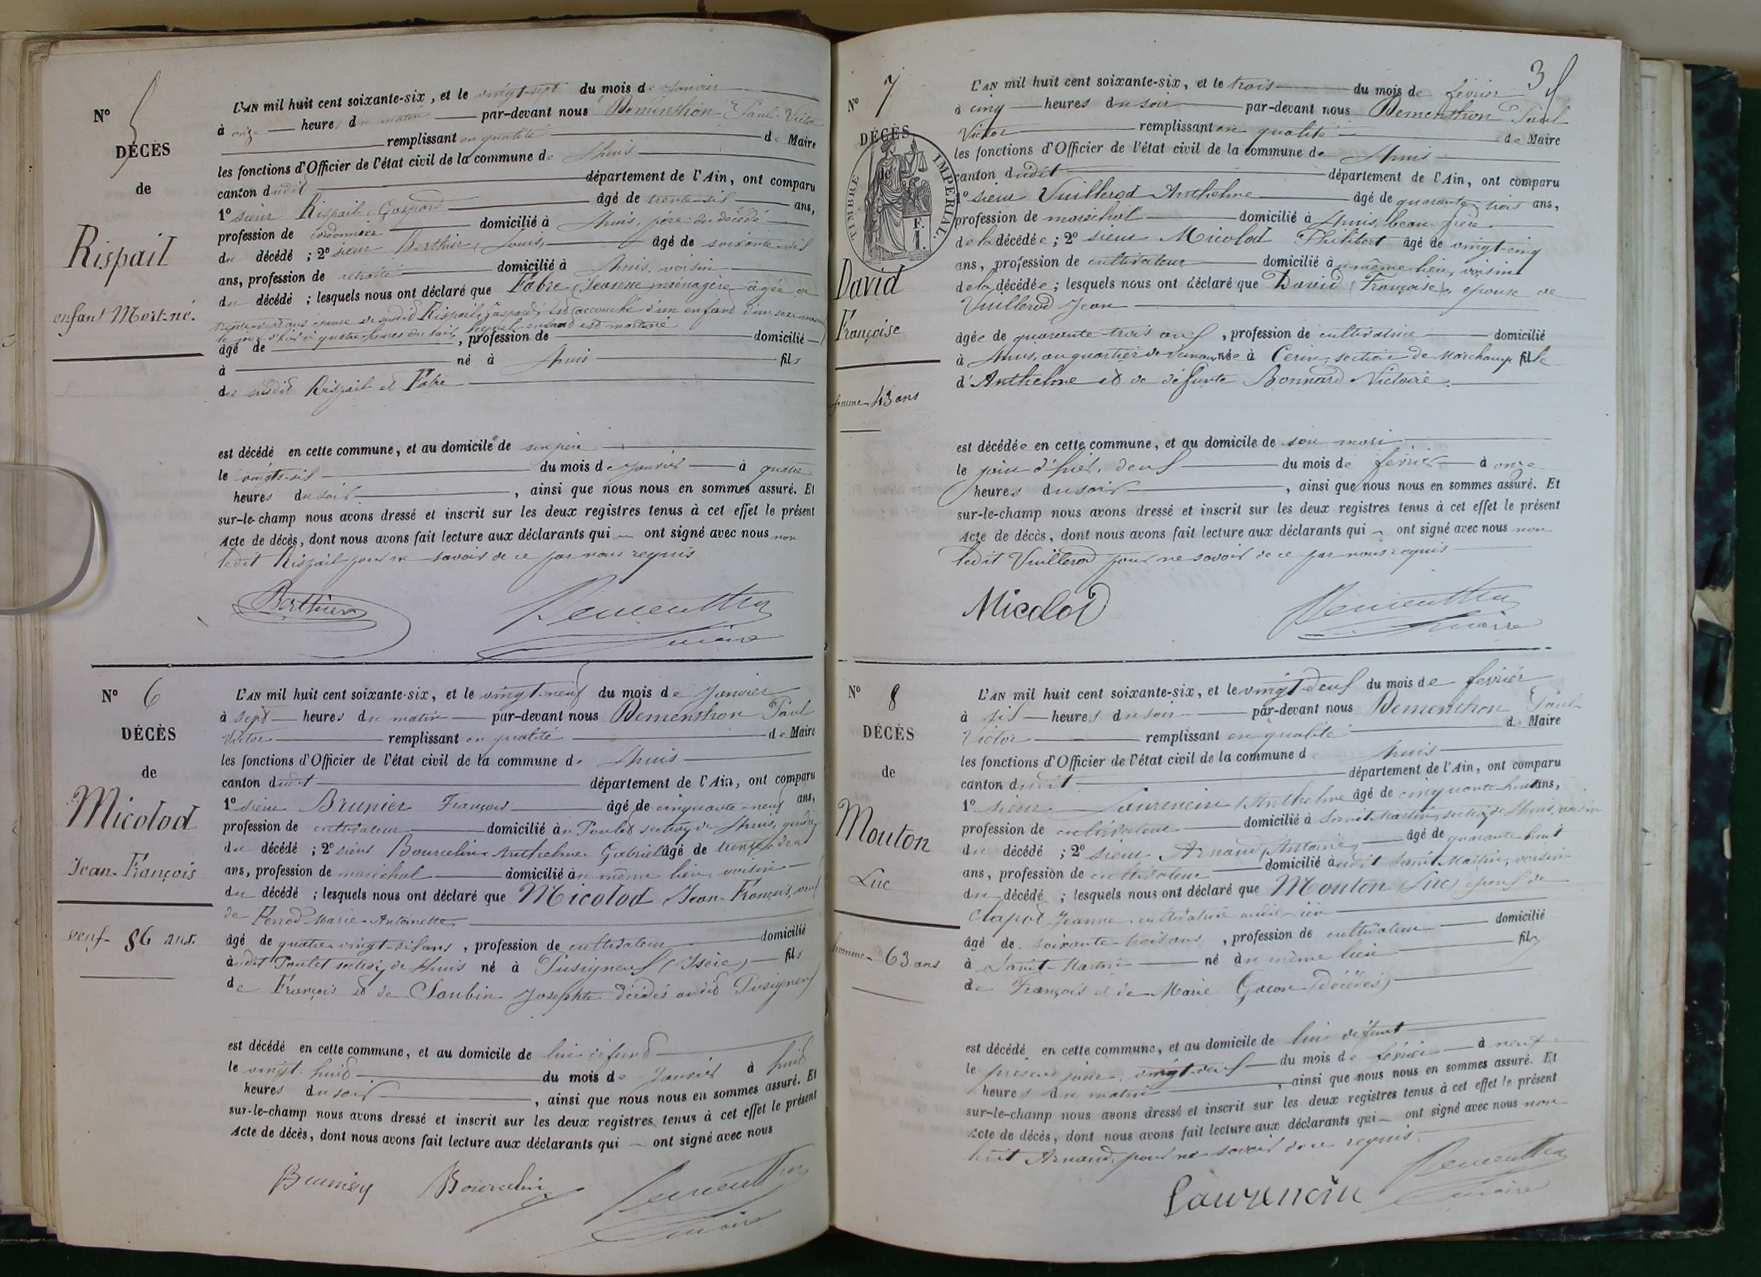 N° 5
DÉCÈS
de
Rispail
enfant Mort-né.
L'AN mil huit cent soixante-six, et le vingt-sept du mois de Janvier
à onze heures du matin par-devant nous Dementhon Paul Victor
remplissant en qualité de Maire
les fonctions d'Officier de l'état civil de la commune de
canton dudit département de l'Ain, ont comparu
1° sieur Rispail Gaspard âgé de trente-six ans,
profession de cordonnier domicilié à père du décédé
du décédé ; 2° sieur Berthier Louis âgé de soixante
ans, profession de retraité domicilié à voisin
du décédé ; lesquels nous ont déclaré que Fabre Jeanne ménagère âgée de
ans épouse du susdit Rispail Gaspard est accouchée d'un enfant du sexe
à quatre heures du soir, lequel enfant est mort-né
âgé de , profession de domicilié
à né à fils
du susdit Rispail et Fabre
est décédé en cette commune, et au domicile de son père
le vingt-six du mois de Janvier à quatre
heures du soir, ainsi que nous nous en sommes assuré. Et
sur-le-champ nous avons dressé et inscrit sur les deux registres tenus à cet effet le présent
Acte de décès, dont nous avons fait lecture aux déclarants qui ont signé avec nous non
ledit Rispail pour ne savoir de ce par nous requis
Berthier Dementhon
maire
N° 6
DÉCÈS
de
Micolod
Jean-François
veuf 86 ans.
L'AN mil huit cent soixante-six, et le vingt-neuf du mois de Janvier
à sept heures du matin par-devant nous Dementhon Paul
Victor remplissant en qualité de Maire
les fonctions d'Officier de l'état civil de la commune de
canton dudit département de l'Ain, ont comparu
1° sieur Brunier François âgé de cinquante-neuf ans,
profession de cultivateur domicilié à Poulet section de gendre
du décédé ; 2° sieur Bourcelin Anthelme Gabriel âgé de
ans, profession de maréchal domicilié au même lieu, voisin
du décédé ; lesquels nous ont déclaré que Micolod Jean-François, veuf
de Marie-Antoinette
âgé de quatre-vingt-six ans, profession de cultivateur domicilié
audit Poulet section de né à Pusigneu (Isère) fils
de François et de Joséphte décédés audit Pusigneu
est décédé en cette commune, et au domicile de lui défunt
le vingt-huit du mois de Janvier à huit
heures du soir, ainsi que nous nous en sommes assuré. Et
sur-le-champ nous avons dressé et inscrit sur les deux registres tenus à cet effet le présent
Acte de décès, dont nous avons fait lecture aux déclarants qui ont signé avec nous
Brunier Bourcelin Dementhon
maire
3
N° 7
DÉCÈS
de
TIMBRE IMPERIAL
F.
1.
David
Françoise
femme 43 ans
L'AN mil huit cent soixante-six, et le trois du mois de février
à cinq heures du soir par-devant nous Dementhon Paul
Victor remplissant en qualité de Maire
les fonctions d'Officier de l'état civil de la commune de
canton dudit département de l'Ain, ont comparu
1° sieur Vuillerod Anthelme âgé de quarante-trois ans,
profession de maréchal domicilié à beau-frère
de la décédée ; 2° sieur Micolod Philibert âgé de vingt-cinq
ans, profession de cultivateur domicilié au même lieu, voisin
de la décédée ; lesquels nous ont déclaré que David Françoise, épouse de
Vuillerod Jean
âgée de quarante-trois ans, profession de cultivatrice domicilié
à au quartier de née à Cerin, section de Marchamp fille
d'Anthelme et de défunte Bonnard Victoire.
est décédée en cette commune, et au domicile de son mari
le jour d'hier, deux du mois de février à onze
heures du soir, ainsi que nous nous en sommes assuré. Et
sur-le-champ nous avons dressé et inscrit sur les deux registres tenus à cet effet le présent
Acte de décès, dont nous avons fait lecture aux déclarants qui ont signé avec nous non
ledit Vuillerod pour ne savoir de ce par nous requis
Micolod Dementhon
maire
N° 8
DÉCÈS
de
Mouton
Luc
homme 63 ans
L'AN mil huit cent soixante-six, et le vingt-deux du mois de février
à six heures du soir par-devant nous Dementhon Paul
Victor remplissant en qualité de Maire
les fonctions d'Officier de l'état civil de la commune de
canton dudit département de l'Ain, ont comparu
1° sieur Laurencin Anthelme âgé de cinquante-huit ans,
profession de cultivateur domicilié à Saint-Martin, section de voisin
du décédé ; 2° sieur Arnaud Antoine âgé de quarante-huit
ans, profession de cultivateur domicilié audit Saint-Martin, voisin
du décédé ; lesquels nous ont déclaré que Mouton Luc, époux de
Clapot Jeanne cultivatrice audit lieu
âgé de soixante-trois ans, profession de cultivateur domicilié
à Saint-Martin né au même lieu fils
de François et de Marie Gacon (décédés)
est décédé en cette commune, et au domicile de lui défunt
le présent jour, vingt-deux du mois de février à neuf
heures du matin, ainsi que nous nous en sommes assuré. Et
sur-le-champ nous avons dressé et inscrit sur les deux registres tenus à cet effet le présent
Acte de décès, dont nous avons fait lecture aux déclarants qui ont signé avec nous non
ledit Arnaud, pour ne savoir de ce requis.
Laurencin Dementhon
maire